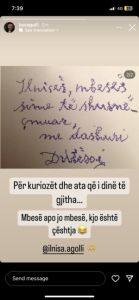 7:39
ilnisagolli
Ilnisës, mbesës
sime të shumë-
çmuar,
me dashuri
Për kuriozët dhe ata që i dinë të
gjitha...
Mbesë apo jo mbesë, kjo është
çështja 😂
@ilnisa.agolli 🫶
Send message